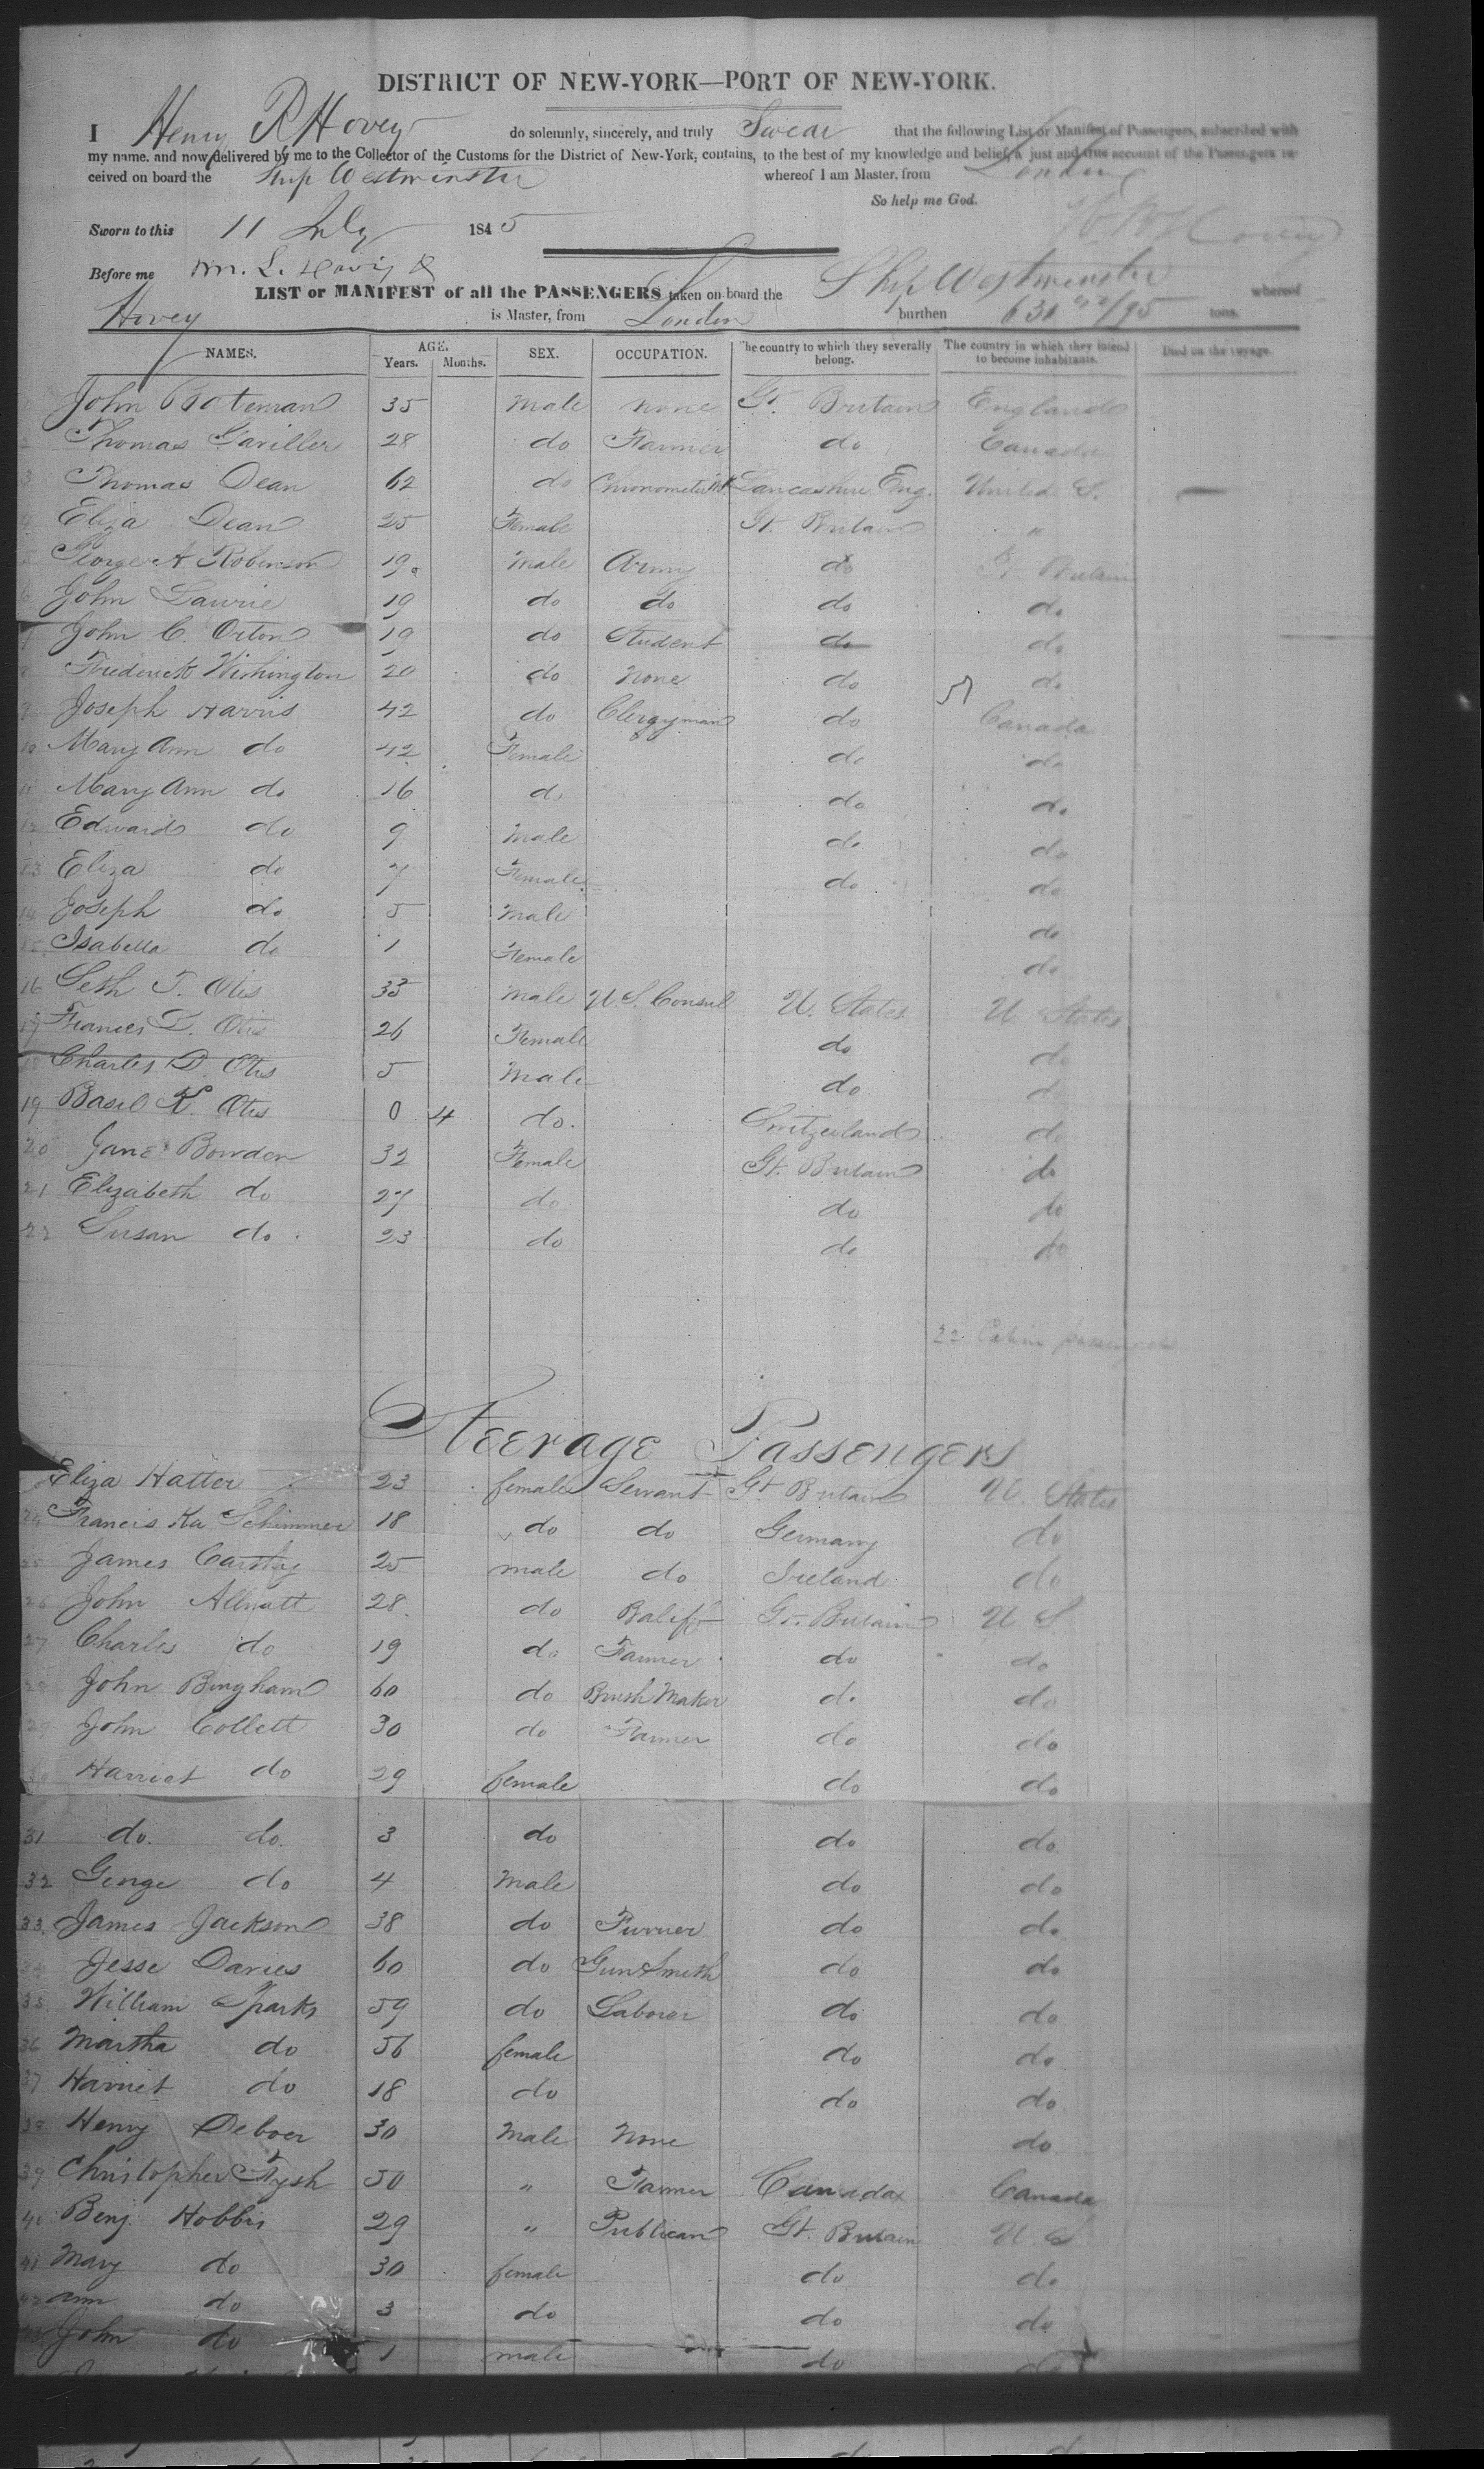 DISTRICT OF NEW-YORK—PORT OF NEW-YORK.
I Henry R Hovey do solemnly, sincerely, and truly Swear that the following List or Manifest of Passengers, subscribed with
my name, and now delivered by me to the Collector of the Customs for the District of New-York, contains, to the best of my knowledge and belief, a just and true account of the Passengers re-
ceived on board the Ship Westminster whereof I am Master, from London
So help me God.
Sworn to this 11 July 1845
Before me Wm. S.
LIST or MANIFEST of all the PASSENGERS taken on board the Ship Westminster whereof
Hovey is Master, from London burthen 631 /95 tons.
NAMES. AGE. Years. Months. SEX. OCCUPATION. The country to which they severally belong. The country in which they intend to become inhabitants. Died on the voyage.
John Bateman 35 Male None Gt. Britain England
2 Thomas Gaviller 28 do Farmer do Canada
3 Thomas Dean 62 do Chronometer Lancashire Eng. United S.
4 Eliza Dean 25 Female Gt. Britain "
5 George A Robinson 19 Male Army do Gt Britain
6 John Laurie 19 do do do do
7 John C. Orton 19 do Student do do
8 Frederick Wishington 20 do None do do
9 Joseph Harris 42 do Clergyman do Canada
10 Mary Ann do 42 Female do do
11 Mary Ann do 16 do do do
12 Edward do 9 Male do do
13 Eliza do 7 Female do do
14 Joseph do 5 Male do
15 Isabella do 1 Female do
16 Seth T. Otis 33 Male U.S. Consul U. States U States
17 Frances T. Otis 26 Female do do
18 Charles D. Otis 5 Male do do
19 Basel K. Otis 0 4 do. Switzerland do
20 Jane Bowden 32 Female Gt. Britain do
21 Elizabeth do 27 do do do
22 Susan do 23 do do do
22 Cabin passengers
Steerage Passengers
Eliza Hatter 23 female Servant Gt Britain U. States
24 Francis Ka Schimmer 18 do do Germany do
25 James Carthy 25 male do Ireland do
26 John Allnatt 28 do Baliff Gt. Britain U S
27 Charles do 19 do Farmer do do
28 John Bingham 60 do Brush Maker do do
29 John Collett 30 do Farmer do do
30 Harriet do 29 female do do
31 do. do. 3 do do do
32 George do 4 Male do do
33 James Jackson 38 do Furrier do do
34 Jesse Davies 60 do Gun Smith do do
35 William Sparks 59 do Laborer do do
36 Martha do 56 female do do
37 Harriet do 18 do do do
38 Henry Deboer 30 Male None do
39 Christopher Fysh 50 " Farmer Canada Canada
40 Benj. Hobbis 29 " Publican Gt. Britain U S
41 Mary do 30 female do do
42 Ann do 3 do do do
43 John do 1 male do do